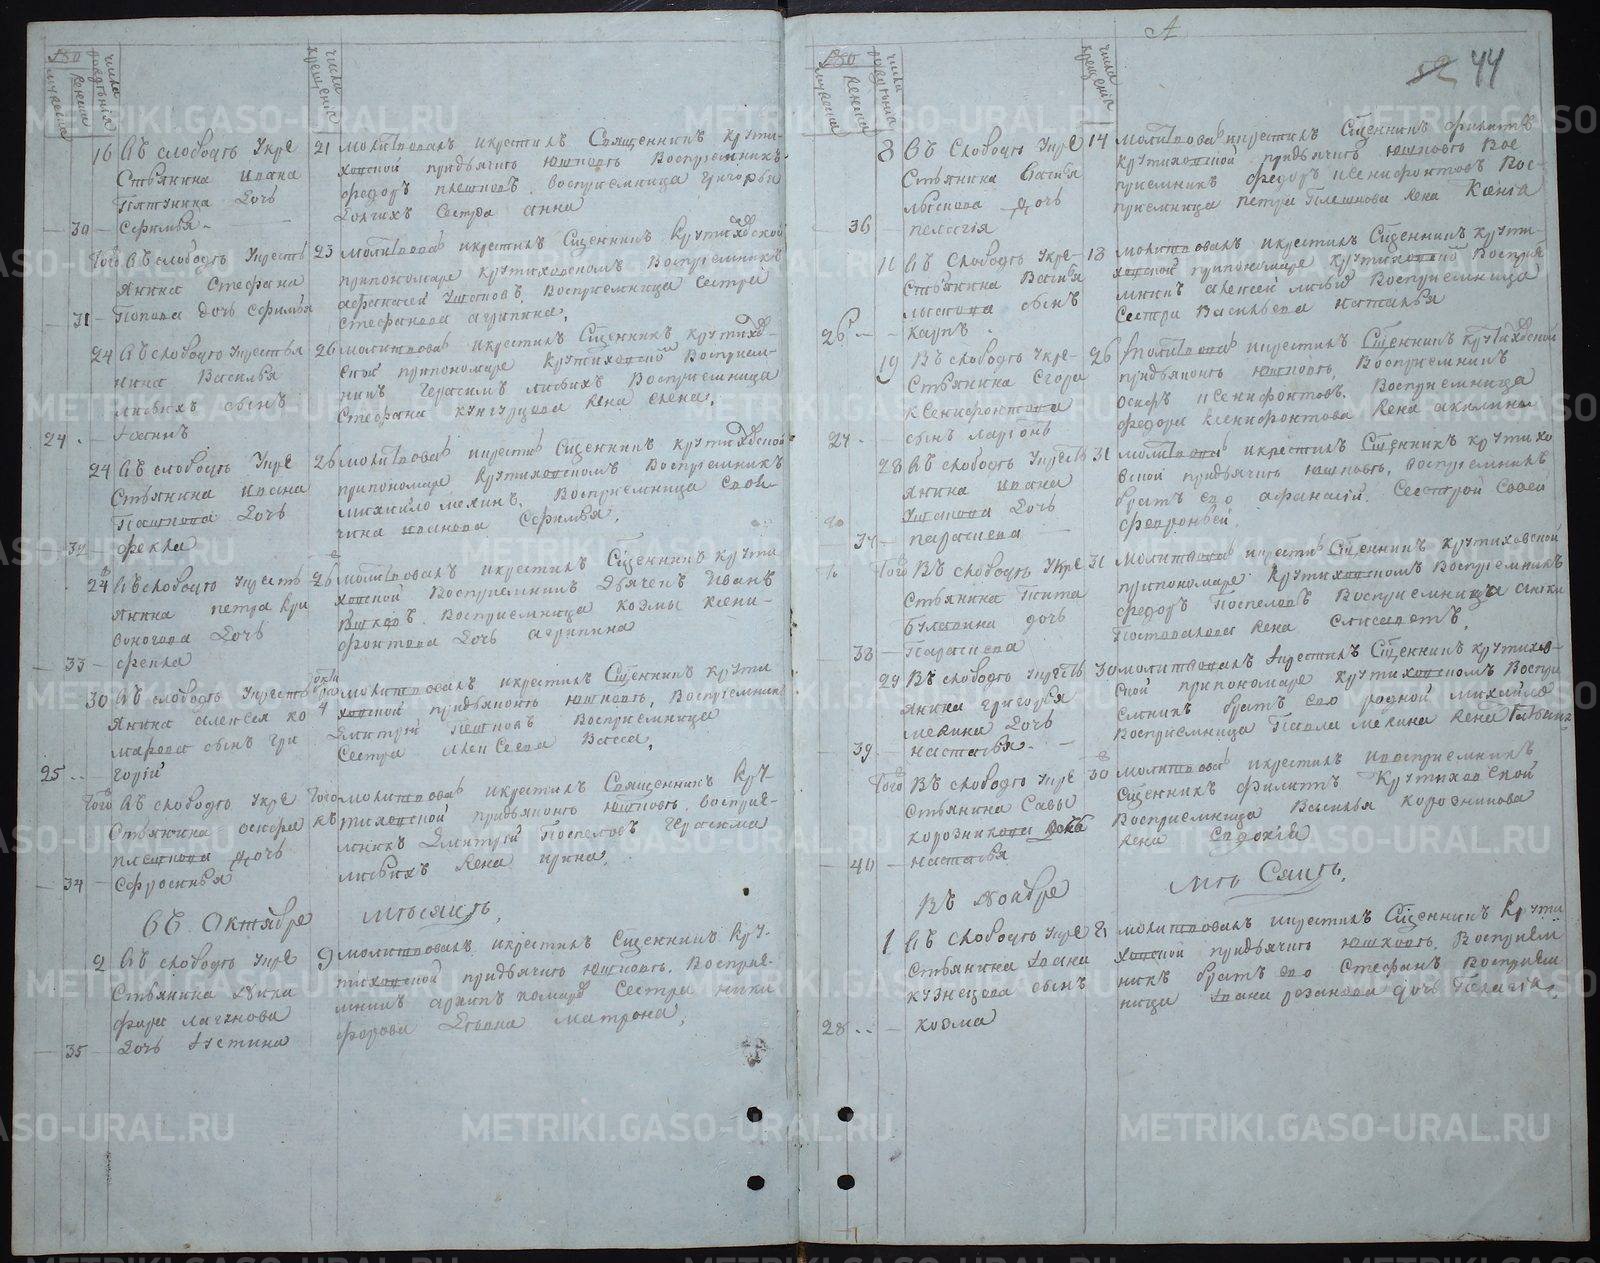 числа рождения
мужеска
женска
числа крещения
16 Въ слободѣ У кре
стьянина Ивана
Пятунина дочь
30 Ефимья
21 молитвовалъ и крестилъ Священникъ крути-
ховской при дьячкѣ Юшковѣ Восприемникъ
федоръ плешковъ. восприемница григорьи
Долгихъ Сестра анна
Того Въ слободѣ У кресть
янина Стефана
31 Попова дочь Ефимья
23 молитвовалъ и крестилъ Сщенникъ крутиховской
при пономаре крутиховскомъ Восприемникъ
афанасей Ушаковъ, Восприемница Сестра
Стефанова агрипина,
24 Въ слободѣ У крестья
нина Василья
лисьихъ сынъ
24
26 молитвовалъ и крестилъ Сщенникъ крутихов-
ской при пономаре крутиховской Восприем-
никъ Герасимъ лисьихъ Восприемница
Стефана кунгурцова жена елена,
24 Въ слободѣ У кре
стьянина Ивана
Пашкова дочь
32 фекла
26 молитвовалъ и крестилъ Сщенникъ крутиховской
при пономаре крутиховскомъ Восприемникъ
михайло мекинъ, Восприемница
ивановa Ефимья,
24 Въ слободѣ У кресть
янина петра кри
воногова дочь
33 фекла
26 молитвовалъ и крестилъ Сщенникъ крути
ховской Восприемникъ Дьячекъ Иванъ
Юшковъ. Восприемница козмы ксени-
фонтова дочь агрипина
30 Въ слободѣ У кресть
янина алексея ко
марова сынъ гри
25 горій
октября 4
молитвовалъ и крестилъ Сщенникъ крути
ховской при дьячкѣ Юшковѣ, Восприемникъ
Димитрій Пешковъ Восприемница
Сестра алексеева Васса,
Того Въ слободѣ У кре
стьянина осифа
плешкова дочь
34 Ефросинья
Того
молитвовалъ и крестилъ Священникъ кру-
тиховской при дьячкѣ Юшковѣ. восприе-
мникъ Димитрій Поспеловъ Герасима
лисьихъ жена ирина,
Въ Октябре мѣсяцѣ,
2 Въ слободѣ У кре
стьянина Ники
фора лагунова
35 дочь Iустина
9 молитвовалъ и крестилъ Сщенникъ кру-
тиховской при дьячкѣ Юшковѣ. Восприе-
мникъ архипъ комаровъ Сестра ники
форова Дѣвица матрона,
52 44
числа рождения
мужеска
женска
числа крещения
8 Въ Слободѣ У кре
Стьянина Василья
лыскова дочь
36 пелагія
14 молитвовалъ и крестилъ Сщенникъ филипъ
крутиховской при дьячкѣ Юшковѣ Вос
приемникъ федоръ ксенифонтовъ Вос-
приемница петра Плешкова жена Ксенія
11 Въ Слободѣ У кре-
Стьянина Василья
лыскова сынъ
26 карпъ
13 молитвовалъ и крестилъ Сщенникъ крути-
ховской при пономаре крутиховской Восприе
мникъ алексей лисьихъ Восприемница
Сестра Васильева наталья
19 Въ слободѣ У кре-
Стьянина Егора
ксенифонтова
27 сынъ ларионъ
26 молитвовалъ и крестилъ Сщенникъ крутиховской
при дьячкѣ Юшковѣ, Восприемникъ
осифъ ксенифонтовъ. Восприемница
федора ксенифонтова жена акилина
28 Въ слободѣ У кресть
янина Ивана
Ушакова дочь
37 параскева
31 молитвовалъ и крестилъ Сщенникъ крутихо
вской при дьячкѣ Юшковѣ, восприемникъ
братъ ево афанасій. Сестрой Своей
февроньей.
Того Въ слободѣ У кре
Стьянина Тита
булавина дочь
38 Параскева
31 молитвовалъ и крестилъ Сщенникъ крутиховской
при пономаре крутиховскомъ Восприемникъ
федоръ Поспеловъ Восприемница
Постовалова жена Елисаветъ,
29 Въ слободѣ У кресть
янина григорья
мекина дочь
39 настасья
30 молитвовалъ и крестилъ Сщенникъ крутихов-
ской при пономаре крутиховскомъ Воспри
емникъ братъ ево родной михайло
Восприемница Павла мекина жена Татьяна
Того Въ слободѣ У кре
Стьянина Савы
корозникова дочь
40 настасья
30 молитвовалъ и крестилъ и восприемникъ
Сщенникъ филипъ Крутиховской
Восприемница Василья корозникова
жена Евдокія
Въ Ноябре мѣсяцѣ,
1 Въ слободѣ У кре
Стьянина Iвана
кузнецова сынъ
28 козма
8 молитвовалъ и крестилъ Сщенникъ крути
ховской при дьячкѣ Юшковѣ. Восприем
никъ братъ ево Стефанъ Восприем
ница Iвана рязанова дочь Пелагія,